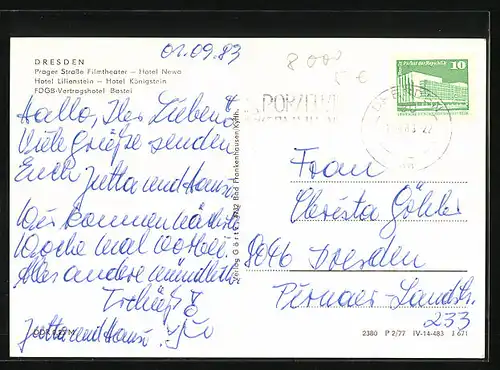 DRESDEN
Prager Straße Filmtheater — Hotel Newa
Hotel Lilienstein — Hotel Königstein
FDGB-Vertragshotel Bastei
01.09.83
8000
5 €
10
Hallo, Ihr Lieben!
Viele Grüße senden
Euch Jutta und Hansi.
Wir kommen nächste
Woche mal vorbei.
Alles andere mündlich.
Tschüß
Jutta und Hansi.
Frau
Christa Göhler
8046 Dresden
Pirnaer-Landstr.
233
Verlag Görtz, 4732 Bad Frankenhausen/Kyffh.
2380 P 2/77 IV-14-483 I 671